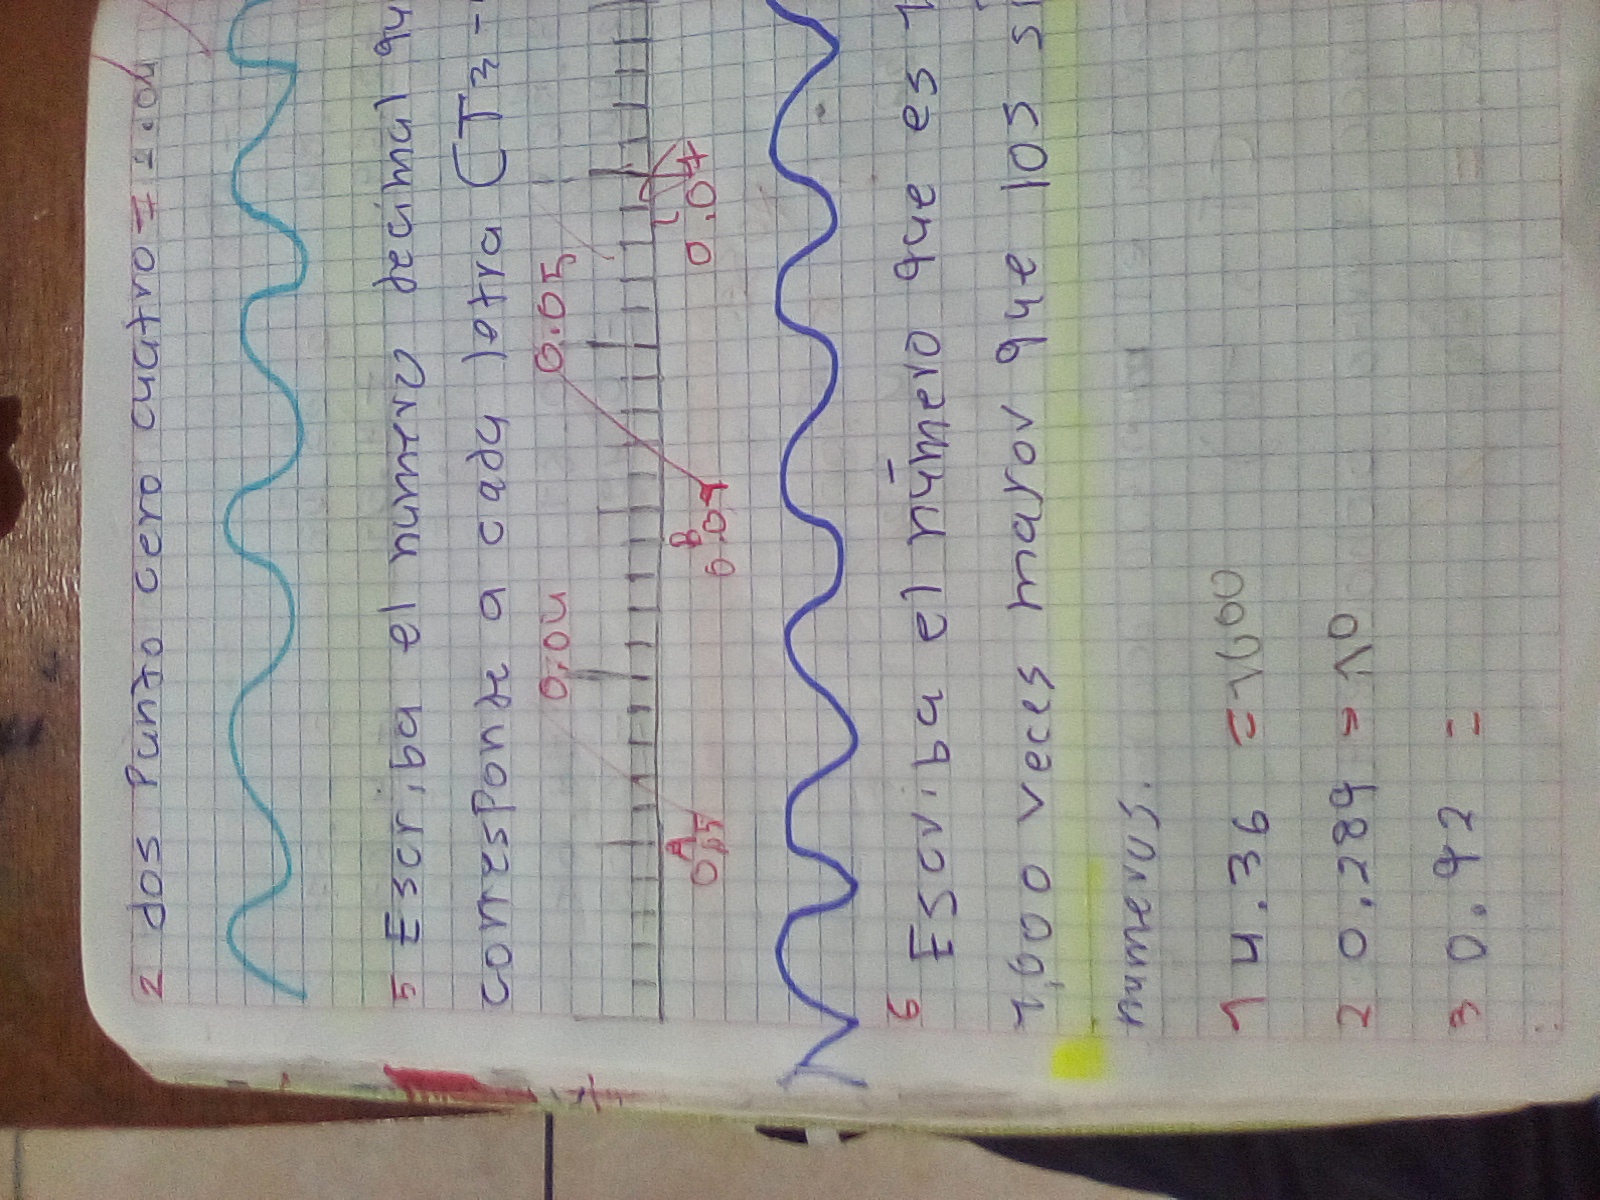 2 dos Punto cero cuatro = 2.04
5 Escriba el número decimal qu
corresponde a cada letra (T3-
0.04 0.05
A B C
0.04
6 Escriba el número que es 1
1,000 veces mayor que los si
numeros.
1 4.36 =
2 0.289 = 10
3 0.92 =